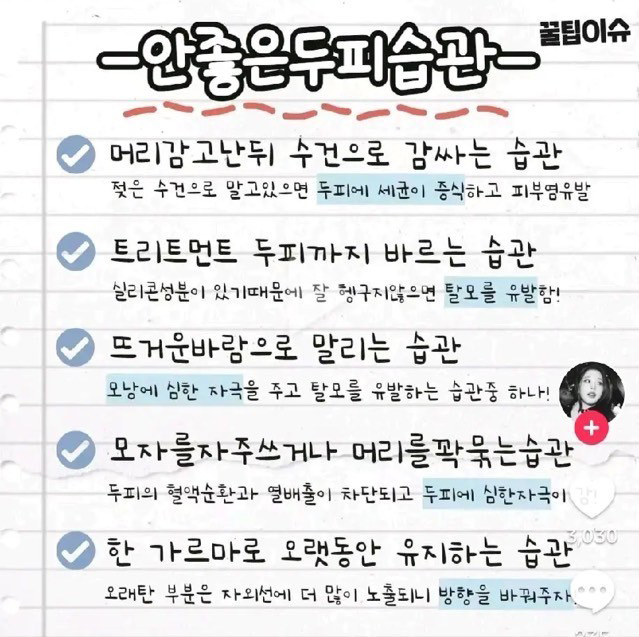 꿀팁이슈
안좋은두피습관
머리감고난뒤 수건으로 감싸는 습관
젖은 수건으로 말고있으면 두피에 세균이 증식하고 피부염유발
트리트먼트 두피까지 바르는 습관
실리콘성분이 있기때문에 잘 헹구지않으면 탈모를 유발함!
뜨거운바람으로 말리는 습관
모낭에 심한 자극을 주고 탈모를 유발하는 습관중 하나!
모자를자주쓰거나 머리를꽉묶는습관
두피의 혈액순환과 열배출이 차단되고 두피에 심한자극이
3,030
한 가르마로 오랫동안 유지하는 습관
오래탄 부분은 자외선에 더 많이 노출되니 방향을 바꿔주자